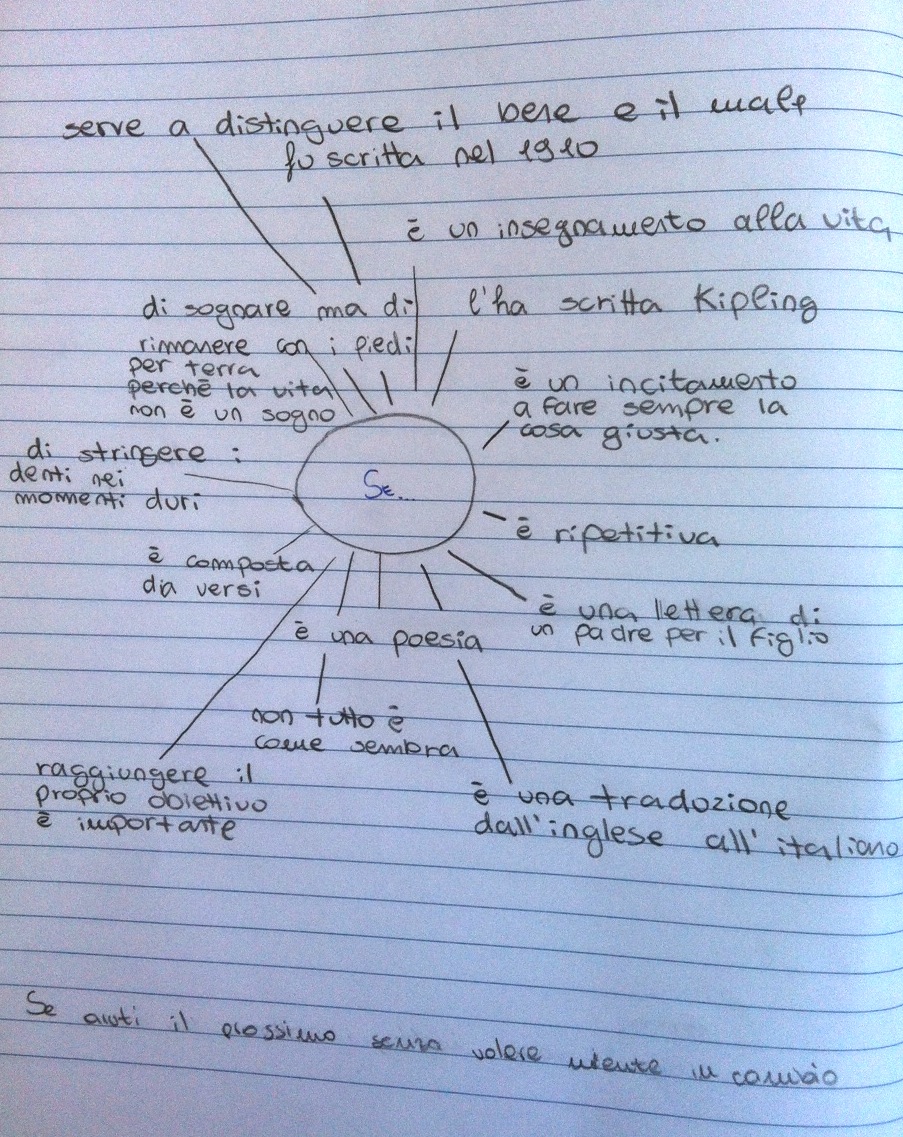 serve a distinguere il bene e il male
fu scritta nel 1910
è un insegnamento alla vita
di sognare ma di
rimanere con i piedi
per terra
perchè la vita
non è un sogno
l'ha scritta Kipling
è un incitamento
a fare sempre la
cosa giusta.
di stringere i
denti nei
momenti duri
Se...
è ripetitiva
è composta
da versi
è una lettera di
un padre per il figlio
è una poesia
non tutto è
come sembra
raggiungere il
proprio obiettivo
è importante
è una traduzione
dall'inglese all'italiano
Se aiuti il prossimo senza volere niente in cambio